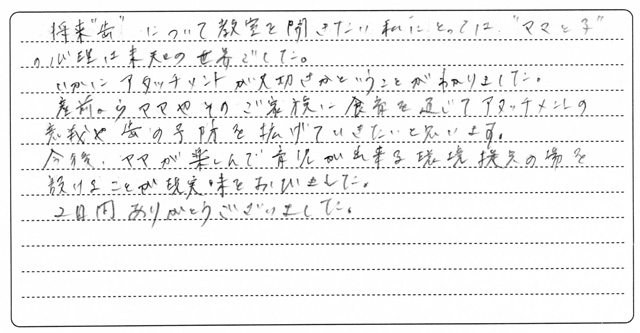 将来"歯"について教室を開きたい私にとっては、"ママと子"
の心理は未知の世界でした。
いかにアタッチメントが大切さかということがわかりました。
産前からママやそのご家族に食育を通じてアタッチメントの
意義や歯の予防を拡げていきたいと思います。
今後、ママが楽しんで育児が出来る環境提供の場を
設けることが現実味をおびました。
2日間ありがとうございました。